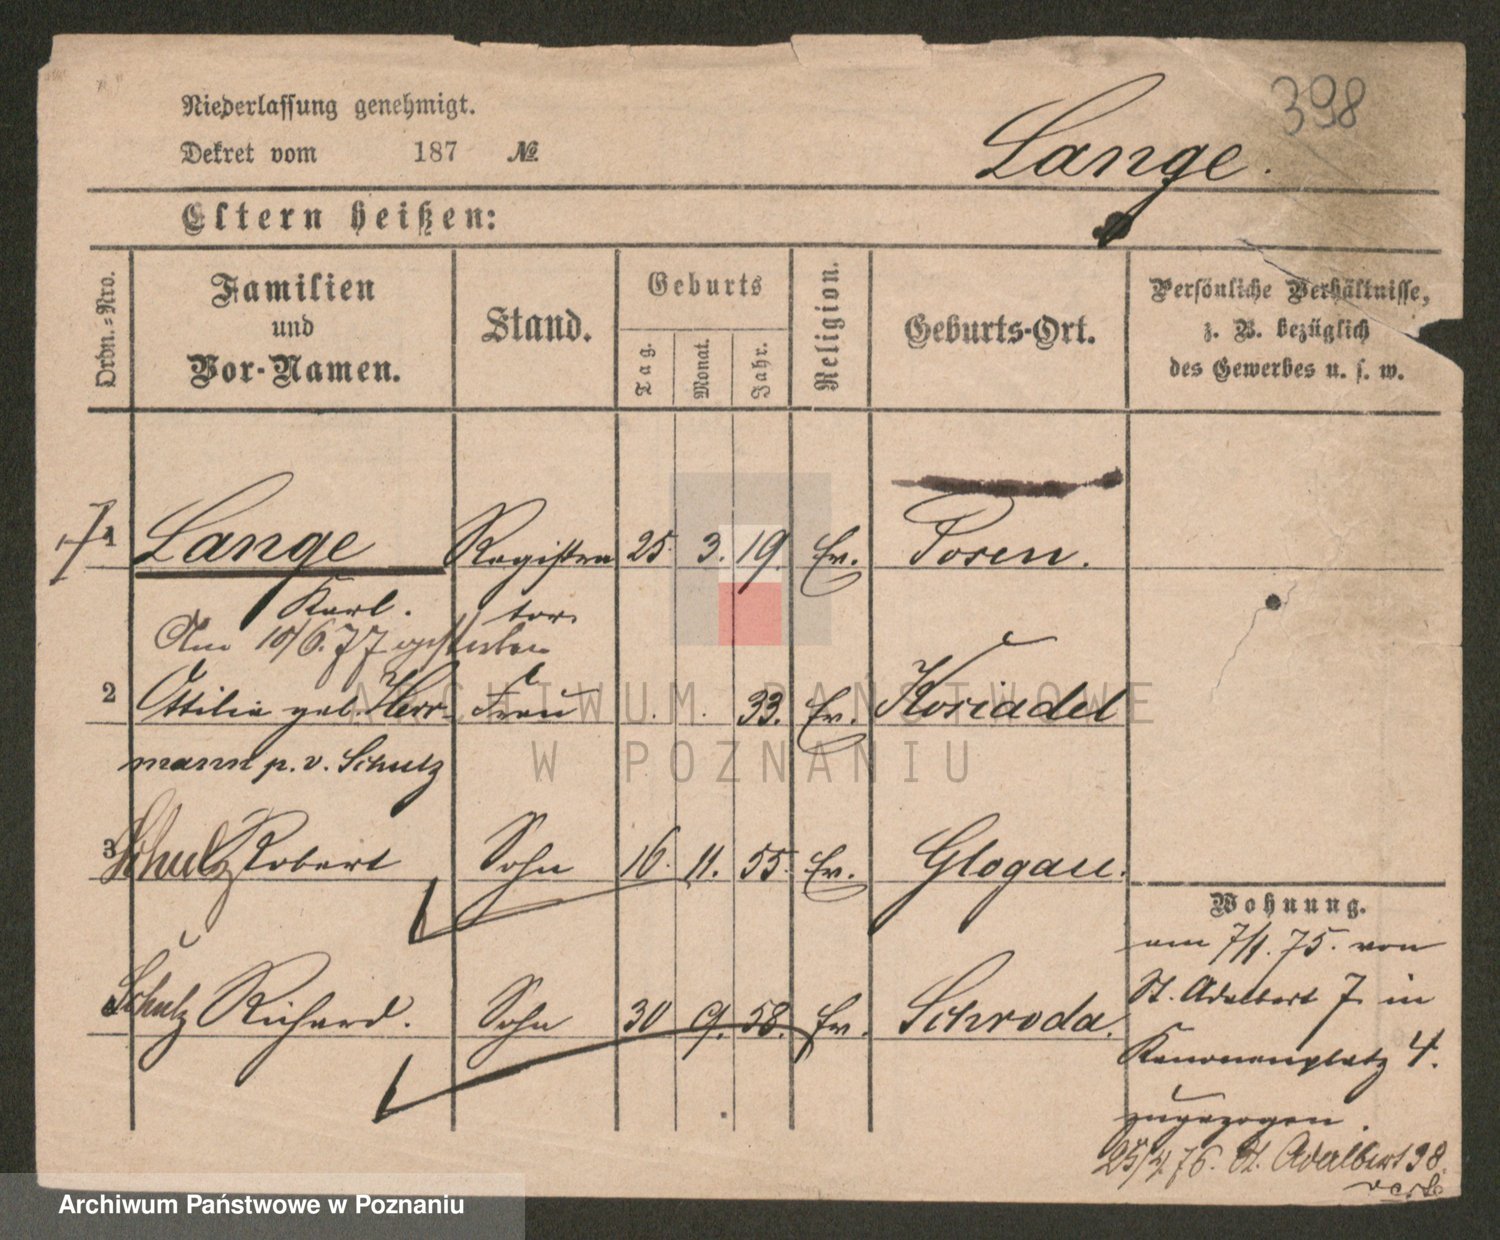 398
Niederlassung genehmigt.
Dekret vom 187 №
Lange.
Eltern heißen:
Ordn.-Nro.
Familien
und
Vor-Namen.
Stand.
Geburts
Tag.
Monat.
Jahr.
Religion.
Geburts-Ort.
Persönliche Verhältnisse,
z. B. bezüglich
des Gewerbes u. s. w.
1 Lange Registra 25. 3. 19. Ev. Posen.
Karl. tor.
Am 10/6. 77 gestorben
2 Ottilie geb. Herr- Frau . . 33. Ev. Kosiadel
mann p. v. Schulz
3 Schulz Robert Sohn 16. 11. 55. Ev. Glogau.
Schulz Richard. Sohn 30 9. 58. Ev. Schroda.
Wohnung.
am 7/1. 75. von
St. Adalbert 7 in
Kanonenplatz 4.
zugezogen.
25/4. 76. St. Adalbert 38.
ARCHIWUM PAŃSTWOWE
W POZNANIU
Archiwum Państwowe w Poznaniu